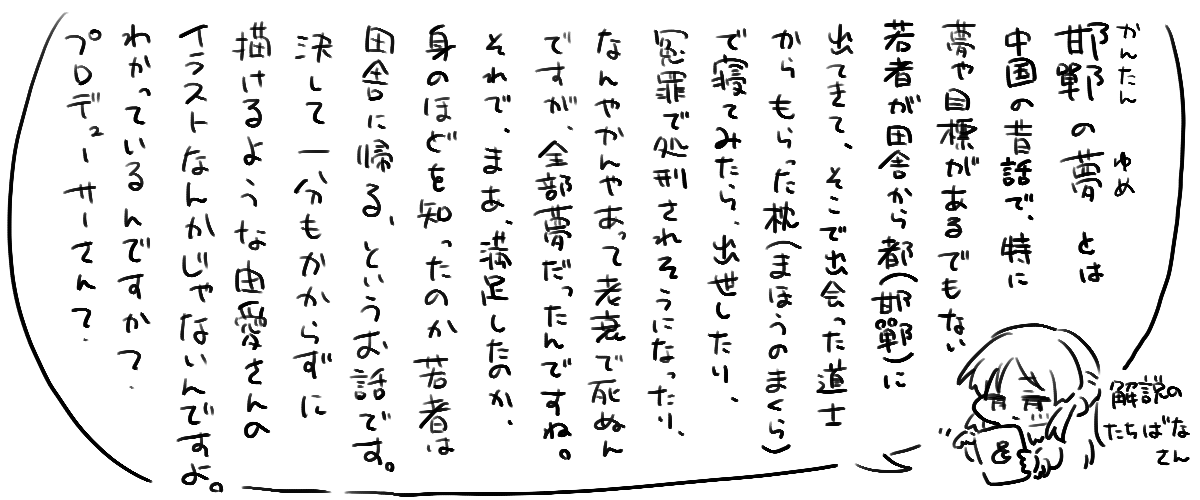 かんたん ゆめ
邯鄲の夢 とは
中国の昔話で、特に
夢や目標があるでもない
若者が田舎から都(邯鄲)に
出てきて、そこで出会った道士
からもらった枕(まほうのまくら)
で寝てみたら、出世したり、
冤罪で処刑されそうになったり、
なんやかんやあって老衰で死ぬん
ですが、全部夢だったんですね。
それで、まあ、満足したのか、
身のほどを知ったのか若者は
田舎に帰る、というお話です。
決して一分もかからずに
描けるような由愛さんの
イラストなんかじゃないんですよ。
わかっているんですか?
プロデューサーさん?
解説の
たちばな
さん